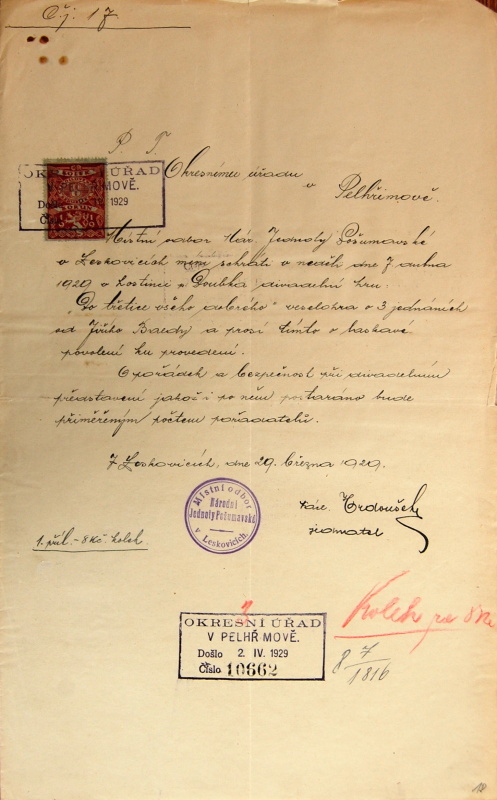 Č.j. 17
P. T.
OKRESNÍ ÚŘAD
V PELHŘIMOVĚ.
Došlo 1929
Číslo
Okresnímu úřadu
v Pelhřimově.
Místní odbor Nár. Jednoty Pošumavské
v Leskovicích míní sehráti v neděli dne 7. dubna
1929 v hostinci p. Doubka divadelní hru:
"Do třetice všeho dobrého" veselohra o 3 jednáních
od Jiřího Baldy a prosí tímto o laskavé
povolení ku provedení.
O pořádek a bezpečnost při divadelním
představení jakož i po něm postaráno bude
přiměřeným počtem pořadatelů.
V Leskovicích, dne 29. března 1929.
Místní odbor
Národní
Jednoty Pošumavské
v Leskovicích.
jednatel
1. příl. - 8 Kč. kolek
Kolek za 8 Kč
OKRESNÍ ÚŘAD
V PELHŘIMOVĚ.
Došlo 2. IV. 1929
Číslo 10662
8 7/1816
18